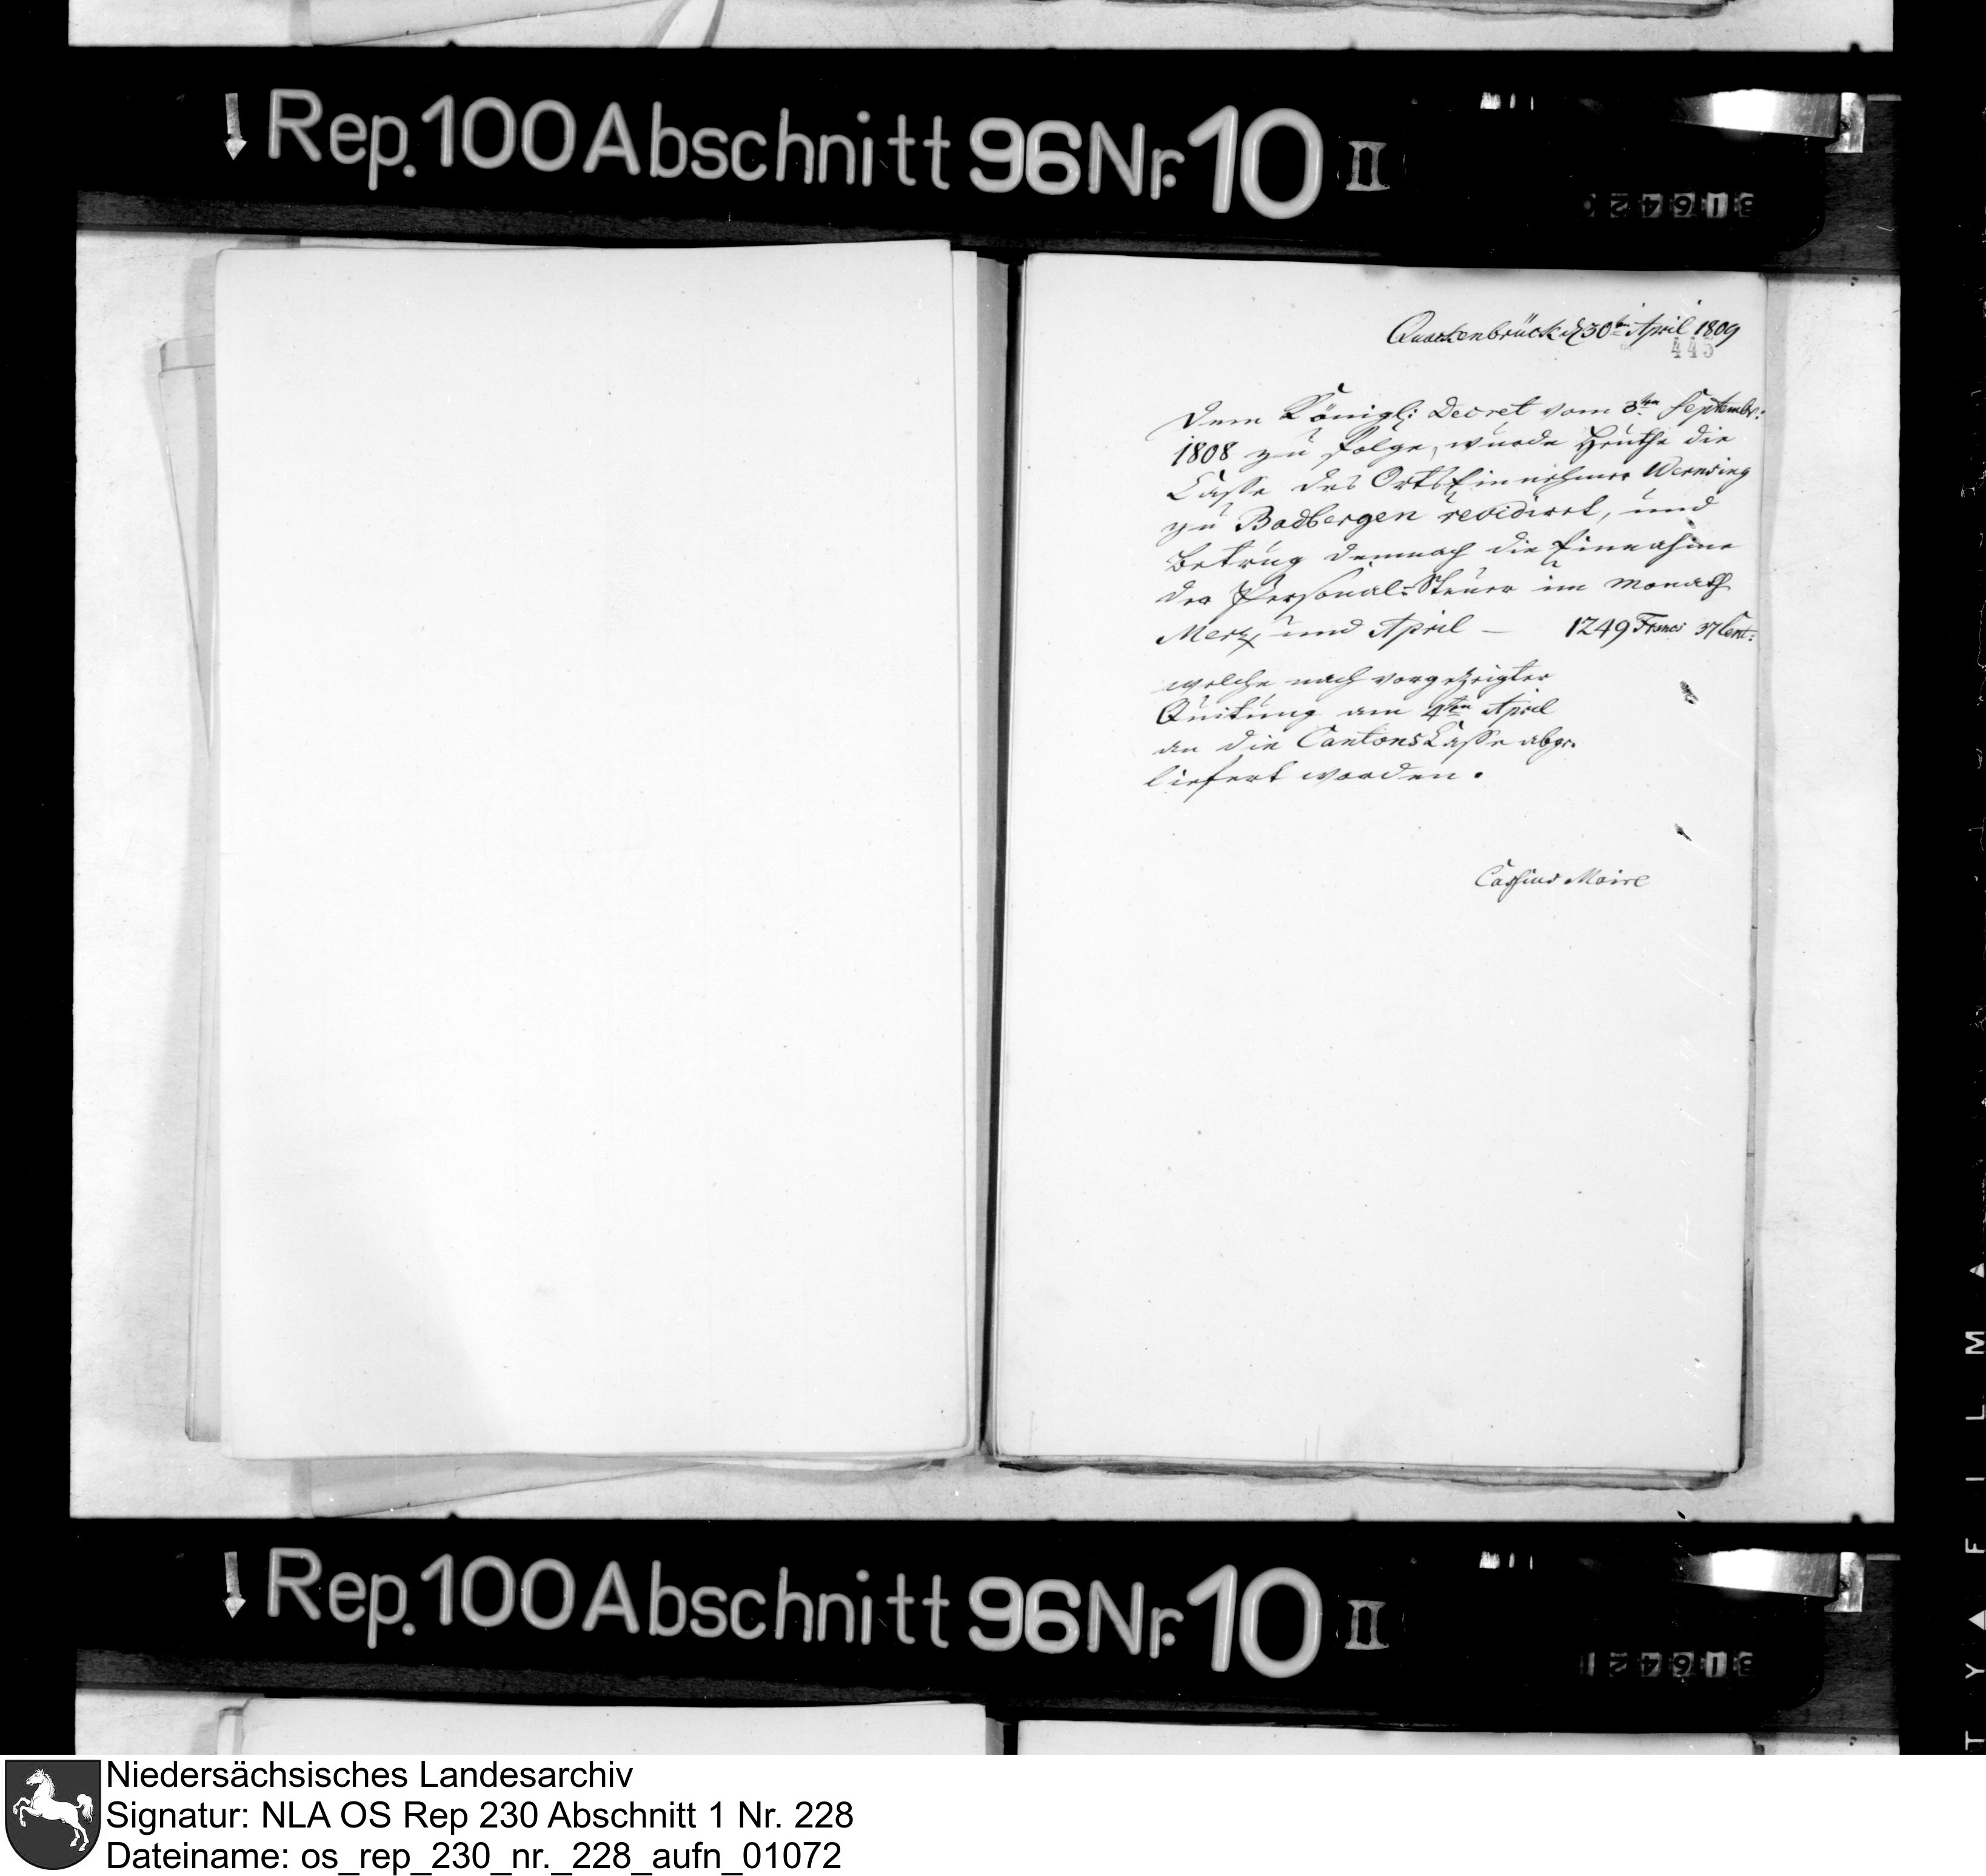 Rep. 100 Abschnitt 96 Nr. 10 II
316420
Quackenbrück d 30ten April 1809
443
Dem Königl: Decret vom 3ten Septembr:
1808 zu folge, wurde Heuthe die
Casse des Orts Einnehmer Wernsing
zu Badbergen revidirt, und
betrug demnach die Einnahme
der Personal-Steuer im Monath
Merz und April — 1249 Francs 37 Cent:
welche nach vorgezeigter
Quitung am 4ten April
an die Cantons Casse abge-
liefert worden.
Maire
Rep. 100 Abschnitt 96 Nr. 10 II
316421
Niedersächsisches Landesarchiv
Signatur: NLA OS Rep 230 Abschnitt 1 Nr. 228
Dateiname: os_rep_230_nr._228_aufn_01072